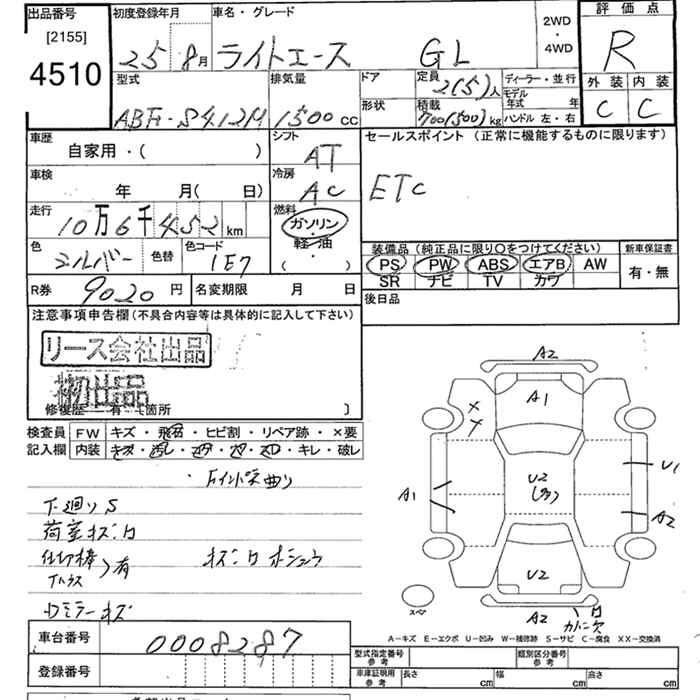 出品番号 初度登録年月 車名・グレード 2WD ・ 4WD 評価点
[2155] 25 8月 ライトエース GL R
4510
型式 排気量 ドア 定員 2(5)人 ディーラー・並行 外装 内装
ABF-S412M 1500cc 形状 積載 kg モデル年式 年 C C
ハンドル 左・右
車歴 シフト セールスポイント (正常に機能するものに限ります)
自家用・( ) AT
車検 冷房 ETC
年 月( 日) AC
走行 燃料
10万6千452km ガソリン
色 色替 色コード 軽油 装備品 (純正品に限り○をつけてください) 新車保証書
シルバー 1E7 ( ) PS PW ABS エアB AW 有・無
SR ナビ TV カワ
R券 9020円 名変期限 月 日 後日品
注意事項申告欄(不具合内容等は具体的に記入して下さい)
リース会社出品
初出品
修復歴 有・( 箇所 )
検査員 FW キズ・飛石・ヒビ割・リペア跡・×要
記入欄 内装 ・キレ・破レ
下廻りS
荷室キズ凹
有
キズ凹 ホシュウ
ロミラーキズ
A2
A1
X
Y
A1 U2 U1
A2
U2
スペア A2
A-キズ E-エクボ U-凹み W-補修跡 S-サビ C-腐食 XX-交換済
車台番号 0008287 型式指定番号 参考 類別区分番号 参考
登録番号 車庫証明用 参考 長さ cm 幅 cm 高さ cm